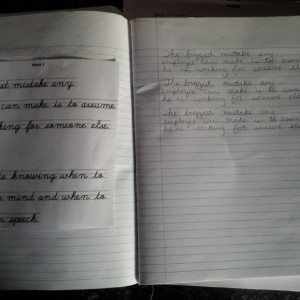 Week 1
st mistake any
can make is to assume
king for someone else.
knowing when to
mind and when to
speech.
The biggest mistake any
employee can make is to assume
he is working for someone
The biggest mistake any
employee can make is to assume
he is working for someone
The biggest mistake any
employee can make is to assume
he is working for someone